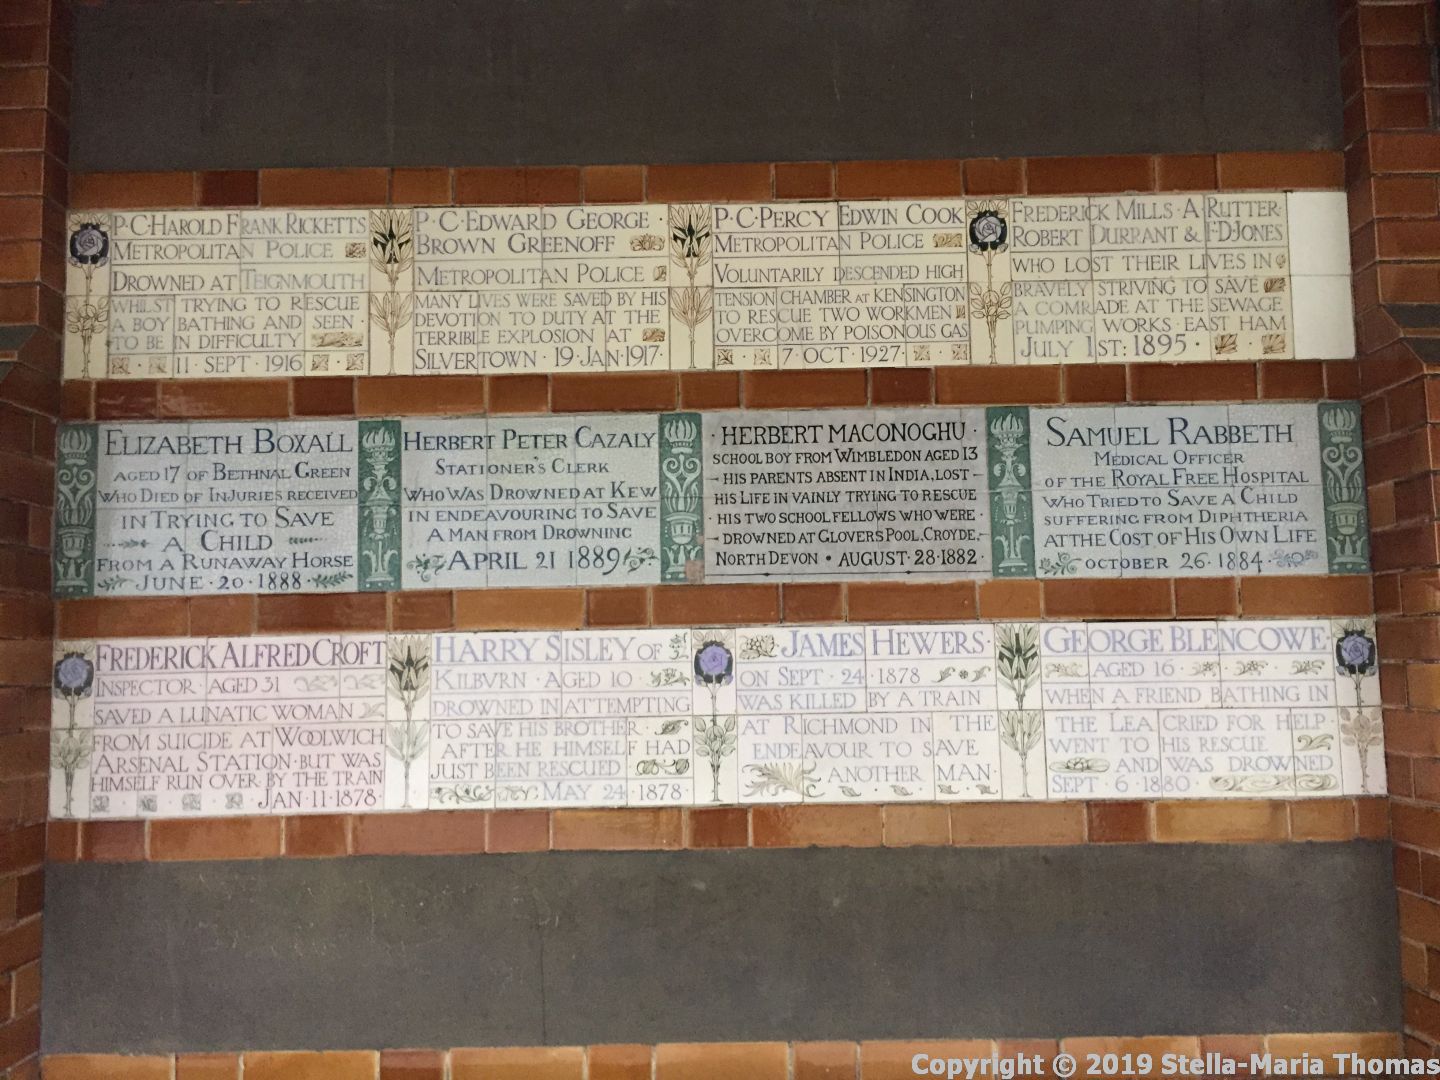 P·C·HAROLD FRANK RICKETTS
METROPOLITAN POLICE
DROWNED AT TEIGNMOUTH
WHILST TRYING TO RESCUE
A BOY BATHING AND SEEN ·
TO BE IN DIFFICULTY
11 · SEPT · 1916
P·C·EDWARD GEORGE ·
BROWN GREENOFF
METROPOLITAN POLICE
MANY LIVES WERE SAVED BY HIS
DEVOTION TO DUTY AT THE
TERRIBLE EXPLOSION AT
SILVERTOWN · 19 JAN·1917·
P·C·PERCY EDWIN COOK
METROPOLITAN POLICE
VOLUNTARILY DESCENDED HIGH
TENSION CHAMBER AT KENSINGTON
TO RESCUE TWO WORKMEN
OVERCOME BY POISONOUS GAS
· 7 OCT · 1927 ·
FREDERICK MILLS · A · RUTTER·
ROBERT DURRANT & F·D·JONES
WHO LOST THEIR LIVES IN
BRAVELY STRIVING TO SAVE
A COMRADE AT THE SEWAGE
PUMPING WORKS · EAST HAM
JULY 1ST: 1895 ·
ELIZABETH BOXALL
AGED 17 OF BETHNAL GREEN
WHO DIED OF INJURIES RECEIVED
IN TRYING TO SAVE
A CHILD
FROM A RUNAWAY HORSE
JUNE · 20 · 1888 ·
HERBERT PETER CAZALY
STATIONER'S CLERK
WHO WAS DROWNED AT KEW
IN ENDEAVOURING TO SAVE
A MAN FROM DROWNING
APRIL 21 1889
· HERBERT MACONOGHU ·
SCHOOL BOY FROM WIMBLEDON AGED 13
HIS PARENTS ABSENT IN INDIA, LOST
HIS LIFE IN VAINLY TRYING TO RESCUE
· HIS TWO SCHOOL FELLOWS WHO WERE ·
DROWNED AT GLOVERS POOL, CROYDE,
NORTH DEVON • AUGUST · 28 · 1882 ·
SAMUEL RABBETH
MEDICAL OFFICER
OF THE ROYAL FREE HOSPITAL
WHO TRIED TO SAVE A CHILD
SUFFERING FROM DIPHTHERIA
AT THE COST OF HIS OWN LIFE
OCTOBER 26 · 1884
FREDERICK ALFRED CROFT
INSPECTOR · AGED 31
SAVED A LUNATIC WOMAN
FROM SUICIDE AT WOOLWICH
ARSENAL STATION · BUT WAS
HIMSELF RUN OVER BY THE TRAIN
· JAN · 11 · 1878 ·
HARRY SISLEY OF
KILBURN · AGED 10 ·
DROWNED IN ATTEMPTING
TO SAVE HIS BROTHER ·
AFTER HE HIMSELF HAD
JUST BEEN RESCUED
MAY 24 · 1878 ·
JAMES HEWERS ·
ON SEPT · 24 · 1878
WAS KILLED BY A TRAIN
AT RICHMOND IN THE
ENDEAVOUR TO SAVE
ANOTHER MAN ·
GEORGE BLENCOWE ·
AGED 16 ·
WHEN A FRIEND BATHING IN
THE LEA CRIED FOR HELP ·
WENT TO HIS RESCUE
AND WAS DROWNED
SEPT · 6 · 1880 ·
Copyright © 2019 Stella-Maria Thomas